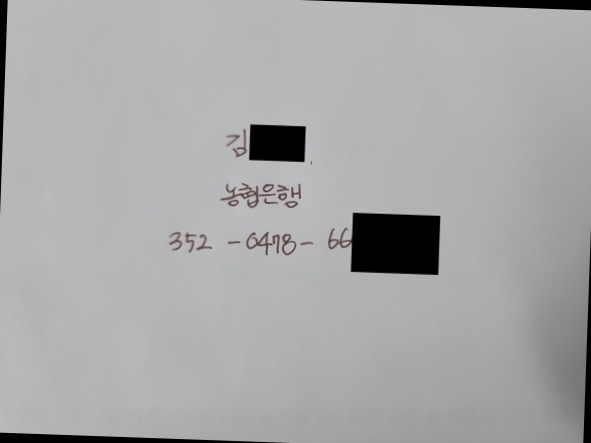 김
농협은행
352 - 0478 - 66